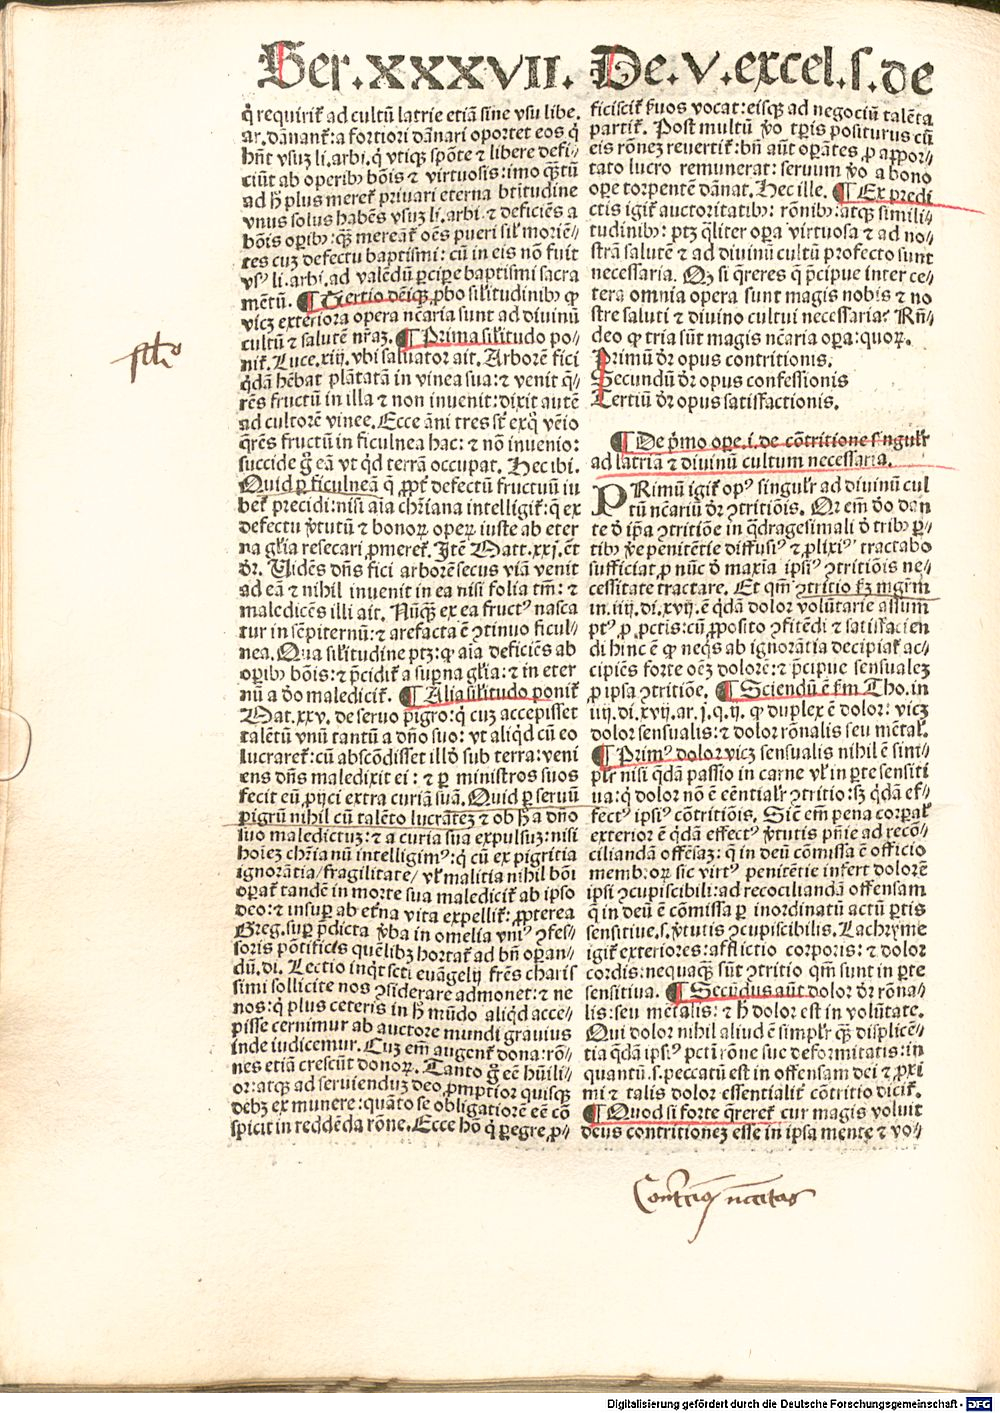 Ser.XXXVII. De.V.excel.s.de
q̇ requirit᷑ ad cultū latrie etiā sine vsu libe.
ar. dānant᷑: a fortiori dānari oportet eos q̇
hn̄t vsuꝫ li.arbi. q̇ vtiqꝫ spōte ⁊ libere defi⸗
ciūt ab operibꝰ bōis ⁊ virtuosis: imo qꝫtū
ad h̄ plus meret᷑ priuari eterna btitudine
vnus solus habēs vsuꝫ li.arbi. ⁊ deficiēs a
bōis oꝑibꝰ: qꝫ mereāt᷑ oēs pueri sil̄ moriē⸗
tes cuꝫ defectu baptismi: cū in eis nō fuit
vsꝰ li.arbi. ad valēdū ꝑciꝑe baptismi sacra
mētū. ¶ Tertio dēiqꝫ ꝓbo sil̄itudinibꝰ ꝙ
vicꝫ exteriora opera nc̄aria sunt ad diuinū
cultū ⁊ salutē nr̄aꝫ. ¶ Prima sil̄itudo po⸗
nit᷑. Luce.xiii. vbi saluator ait. Arborē fici
q̄dā hēbat plātatā in vinea sua: ⁊ venit q̄⸗
rēs fructū in illa ⁊ non inuenit: dixit autē
ad cultorē vinee. Ecce āni tres st̄ exq̇ vēio
q̄rēs fructū in ficulnea hac: ⁊ nō inuenio:
succide g̊ eā vt qd̄ terrā occupat. Hec ibi.
Quid ꝑ ficulneā q̄ ꝓpt̄ defectū fructuū iu
bet᷑ precidi: nisi aīa chr̄iana intelligit᷑: q̄ ex
defectu v̄tutū ⁊ bonoꝝ operꝝ iuste ab eter
na gl̄ia resecari ꝓmeret᷑. Itē Matt.xxj. ēt
dr̄. Uidēs dn̄s fici arborē secus viā venit
ad eā ⁊ nihil inuenit in ea nisi folia tm̄: ⁊
maledicēs illi ait. Nūqꝫ ex ea fructꝰ nasca
tur in sēpiternū: ⁊ arefacta ē ꝯtinuo ficul⸗
nea. Qua sil̄itudine ptꝫ: ꝙ aīa deficiēs ab
oꝑibꝰ bōis: ⁊ p̄cidit᷑ a suꝑna gl̄ia: ⁊ in eter
nū a d̄o maledicit᷑. ¶ Alia sil̄itudo ponit᷑
Mat.xxv. de seruo pigro: q̇ cuꝫ accepisset
talētū vnū tantū a dn̄o suo: vt aliqd̄ cū eo
lucraret᷑: cū abscōdisset illd̄ sub terra: veni
ens dn̄s maledixit ei: ⁊ ꝑ ministros suos
fecit eū ꝓijci extra curiā suā. Quid ꝑ seruū
pigrū nihil cū talēto lucrātē ⁊ ob h̄ a dn̄o
suo maledictuꝫ: ⁊ a curia sua expulsuꝫ: nisi
hoiez chr̄ianū intelligimꝰ: q̇ cū ex pigritia
ignorātia/fragilitate/ vl̄ malitia nihil bōi
oꝑat᷑ tandē in morte sua maledicit᷑ ab ipso
deo: ⁊ insuꝑ ab et̄na vita expellit᷑: ꝓpterea
Greg. suꝑ p̄dicta v̄ba in omelia vniꝰ ꝯfes⸗
soris pōtificis quēlibꝫ hortat᷑ ad bn̄ oꝑan⸗
dū. di. Lectio inq̇t scti euāgelij fr̄es charis
simi sollicite nos ꝯsiderare admonet: ⁊ ne
nos: q̇ plus ceteris in h̄ mūdo aliqd̄ acce⸗
pisse cernimur ab auctore mundi grauius
inde iudicemur. Cuꝫ em̄ augent᷑ dona: rō⸗
nes etiā crescūt donoꝝ. Tanto g̊ eē hūili⸗
or: atqꝫ ad seruienduꝫ deo ꝓmptior quisqꝫ
debꝫ ex munere: quāto se obligatiorē eē cō
spicit in reddēda rōne. Ecce hō q̇ ꝑegre ꝓ⸗
ficiscit᷑ s̄uos vocat: eisqꝫ ad negociū talēta
partit᷑. Post multū v̄o tꝑis positurus cū
eis rōnez reuertit᷑: bn̄ aūt oꝑātes, ꝓ appor⸗
tato lucro remunerat: seruum v̄o a bono
oꝑe torpentē dānat. Hec ille. ¶ Ex predi
ctis igit᷑ auctoritatibꝰ: rōnibꝰ: atqꝫ simili⸗
tudinibꝰ: ptꝫ q̄liter oꝑa virtuosa ⁊ ad no⸗
strā salutē ⁊ ad diuinū cultū profecto sunt
necessaria. Qꝫ si q̄reres q̄ p̄cipue inter ce⸗
tera omnia opera sunt magis nobis ⁊ no
stre saluti ⁊ diuino cultui necessaria? Rn̄⸗
deo ꝙ tria sūt magis nc̄aria oꝑa: quoꝝ.
Primū dr̄ opus contritionis.
Secundū dr̄ opus confessionis
Tertiū dr̄ opus satisfactionis.
¶ De p̄mo oꝑe.i. de cōtritione singul̄r
ad latriā ⁊ diuinū cultum necessaria.
PRimū igit᷑ opꝰ singul̄r ad diuinū cul
tū nc̄ariū dr̄ ꝯtritiōis. Qr em̄ d̄o dan
te d̄ ip̄a ꝯtritiōe in q̄dragesimali d̄ tribꝰ ꝑ⸗
tibꝰ v̄e penitētie diffusiꝰ ⁊ ꝓlixiꝰ tractabo
sufficiat ꝓ nūc d̄ maxīa ipsiꝰ ꝯtritiōis ne⸗
cessitate tractare. Et qm̄ ꝯtritio s̄ꝫ mgr̄m
in.iiij.di.xvij. ē q̄dā dolor volūtarie assum
ptꝰ ꝓ pctis: cū ꝓposito ꝯfitēdi ⁊ satisfacien
di hinc ē ꝙ neqs̄ ab ignorātia decipiat᷑ ac⸗
cipiēs forte oēꝫ dolorē: ⁊ p̄cipue sensualeꝫ
ꝓ ipsa ꝯtritiōe. ¶ Sciendū ē s̄m Tho. in
iiij.di.xvij.ar.j.q.ij. ꝙ duplex ē dolor: vicꝫ
dolor sensualis: ⁊ dolor rōnalis seu mētal᷑.
¶ Primꝰ dolor vicꝫ sensualis nihil ē sim⸗
pl̄r nisi q̄dā passio in carne vl̄ in ꝑte sensiti
ua: q̇ dolor nō ē eēntial̄r ꝯtritio: sꝫ q̄dā ef⸗
fectꝰ ipsiꝰ cōtritiōis. Sic em̄ pena corꝑal̄
exterior ē q̄dā effectꝰ v̄tutis pn̄ie ad recō⸗
ciliandā offēsaꝫ: q̄ in deū cōmissa ē officio
membroꝝ sic virtꝰ penitētie infert dolorē
ipsi ꝯcupiscibili: ad recōciliandā offensam
q̄ in deū ē cōmissa ꝑ inordinatū actū ꝑtis
sensitiue.s. v̄tutis ꝯcupiscibilis. Lachryme
igit᷑ exteriores: afflictio corporis: ⁊ dolor
cordis: nequaqꝫ sūt ꝯtritio qm̄ sunt in ꝑte
sensitiua. ¶ Secūdus aūt dolor dr̄ rōna⸗
lis: seu mētalis: ⁊ h̄ dolor est in volūtate.
Qui dolor nihil aliud ē simpl̄r qꝫ displicē⸗
tia q̄dā ipsiꝰ pctī rōne sue deformitatis: in
quantū.s. peccatū est in offensam dei ⁊ ꝓxi
mi ⁊ talis dolor essentialit᷑ cōtritio dicit᷑.
¶ Quod si forte q̄reret᷑ cur magis voluit
deus contritionez esse in ipsa mente ⁊ vo⸗
Digitalisierung gefördert durch die Deutsche Forschungsgemeinschaft - DFG